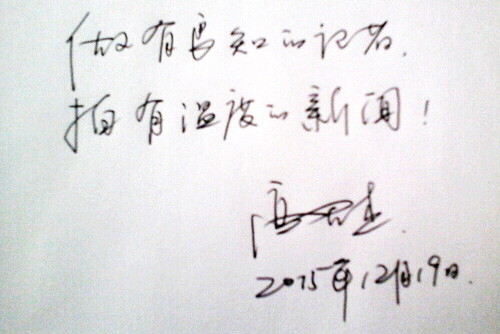 做有良知的记者.
拍有温度的新闻!
2015年12月19日.